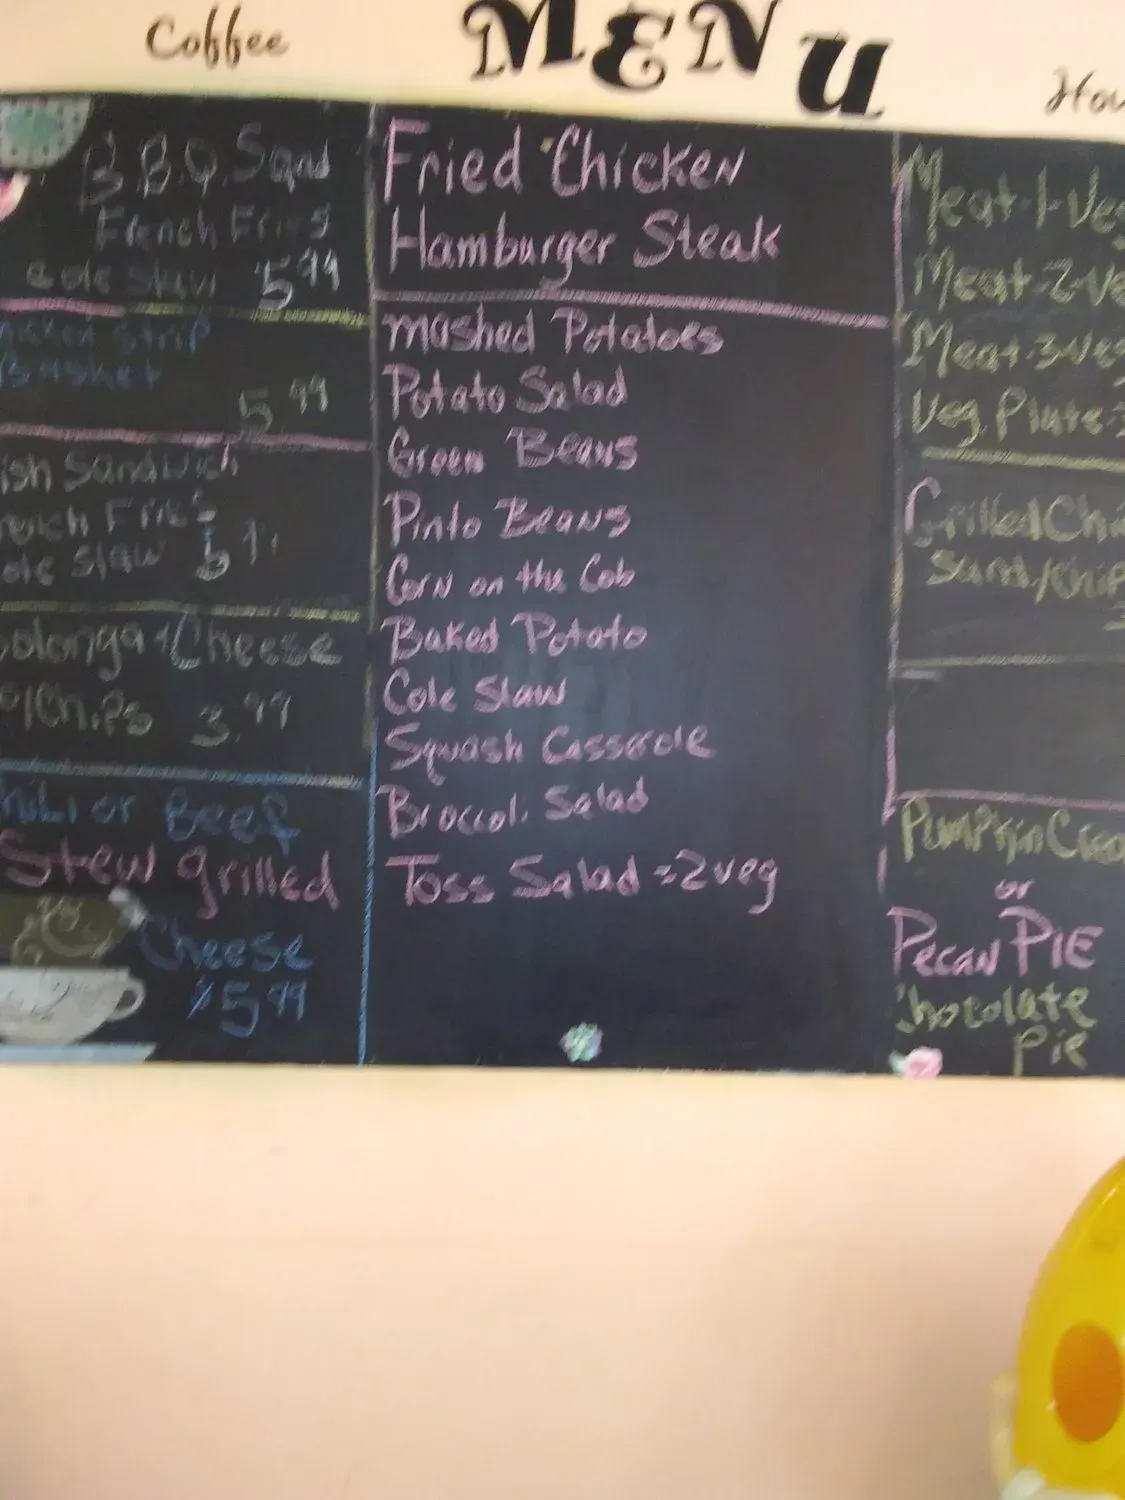 Coffee
MENU
B.B.Q. Sand
French Fries
Cole Slaw 5.99
Strip
Basket
5.99
ish Sandwich
Fries
ole Slaw
olonga + Cheese
/Chips 3.99
hili or Beef
Stew grilled
Cheese
$5.99
Fried Chicken
Hamburger Steak
Mashed Potatoes
Potato Salad
Green Beans
Pinto Beans
Corn on the Cob
Baked Potato
Cole Slaw
Squash Casserole
Broccoli Salad
Toss Salad = 2 veg
Hou
Meat-1-Veg
Meat-2-Ve
Meat-3-Veg
Veg. Plate-
Grilled Chi
Sand/Chip
Pumpkin Crea
or
Pecan PIE
Chocolate
Pie